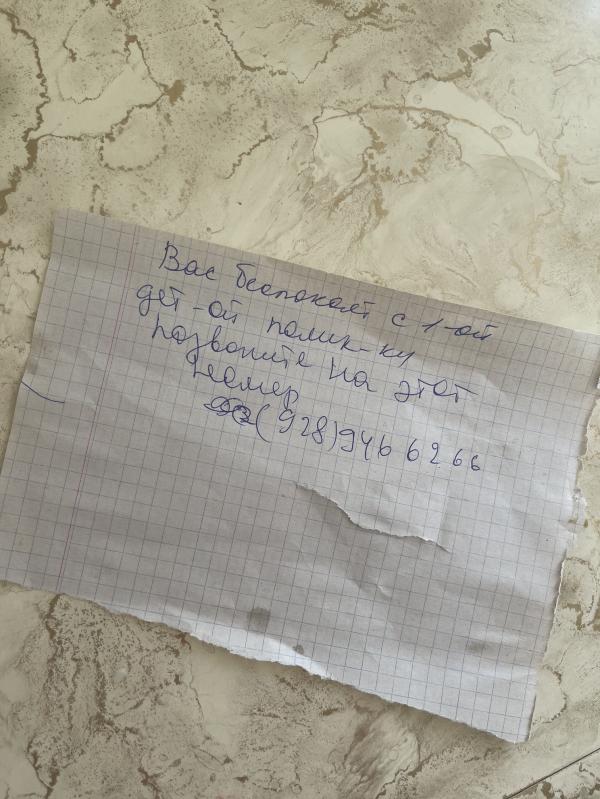 Вас беспокоят с 1-ой
дет-ой полик-ки
позвоните на этот
номер
(928)946 62 66